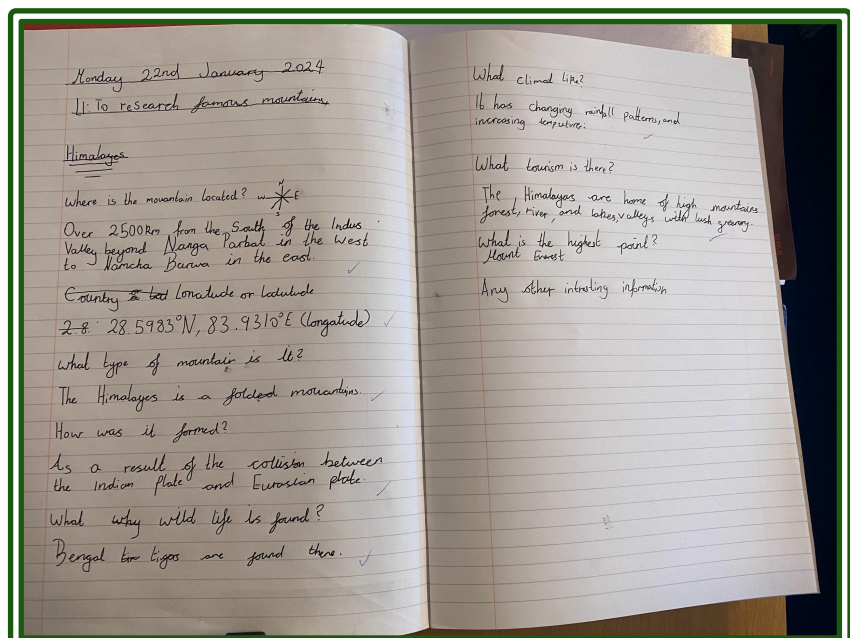 Monday 22nd January 2024
LI: To research famous mountains
Himalayes
Where is the mouantain located? N W E S
Over 2500km from the South of the Indus
Valley beyond Nanga Parbat in the West
to Namcha Barwa in the east.
Country Lonatude or Ladutude
2.8. 28.5983°N, 83.9310°E (longatude)
What type of mountain is it?
The Himalayes is a folded mouantains.
How was it formed?
As a result of the collision between
the Indian plate and Eurasian plate.
What why wild life is found?
Bengal tigers are found there.
What climat like?
It has changing rainfall patterns, and
increasing temputure.
What tourism is there?
The Himalayas are home of high mountains
forest, river, and lakes, valleys with lush greenery.
What is the highest point?
Mount Everest
Any other intresting information